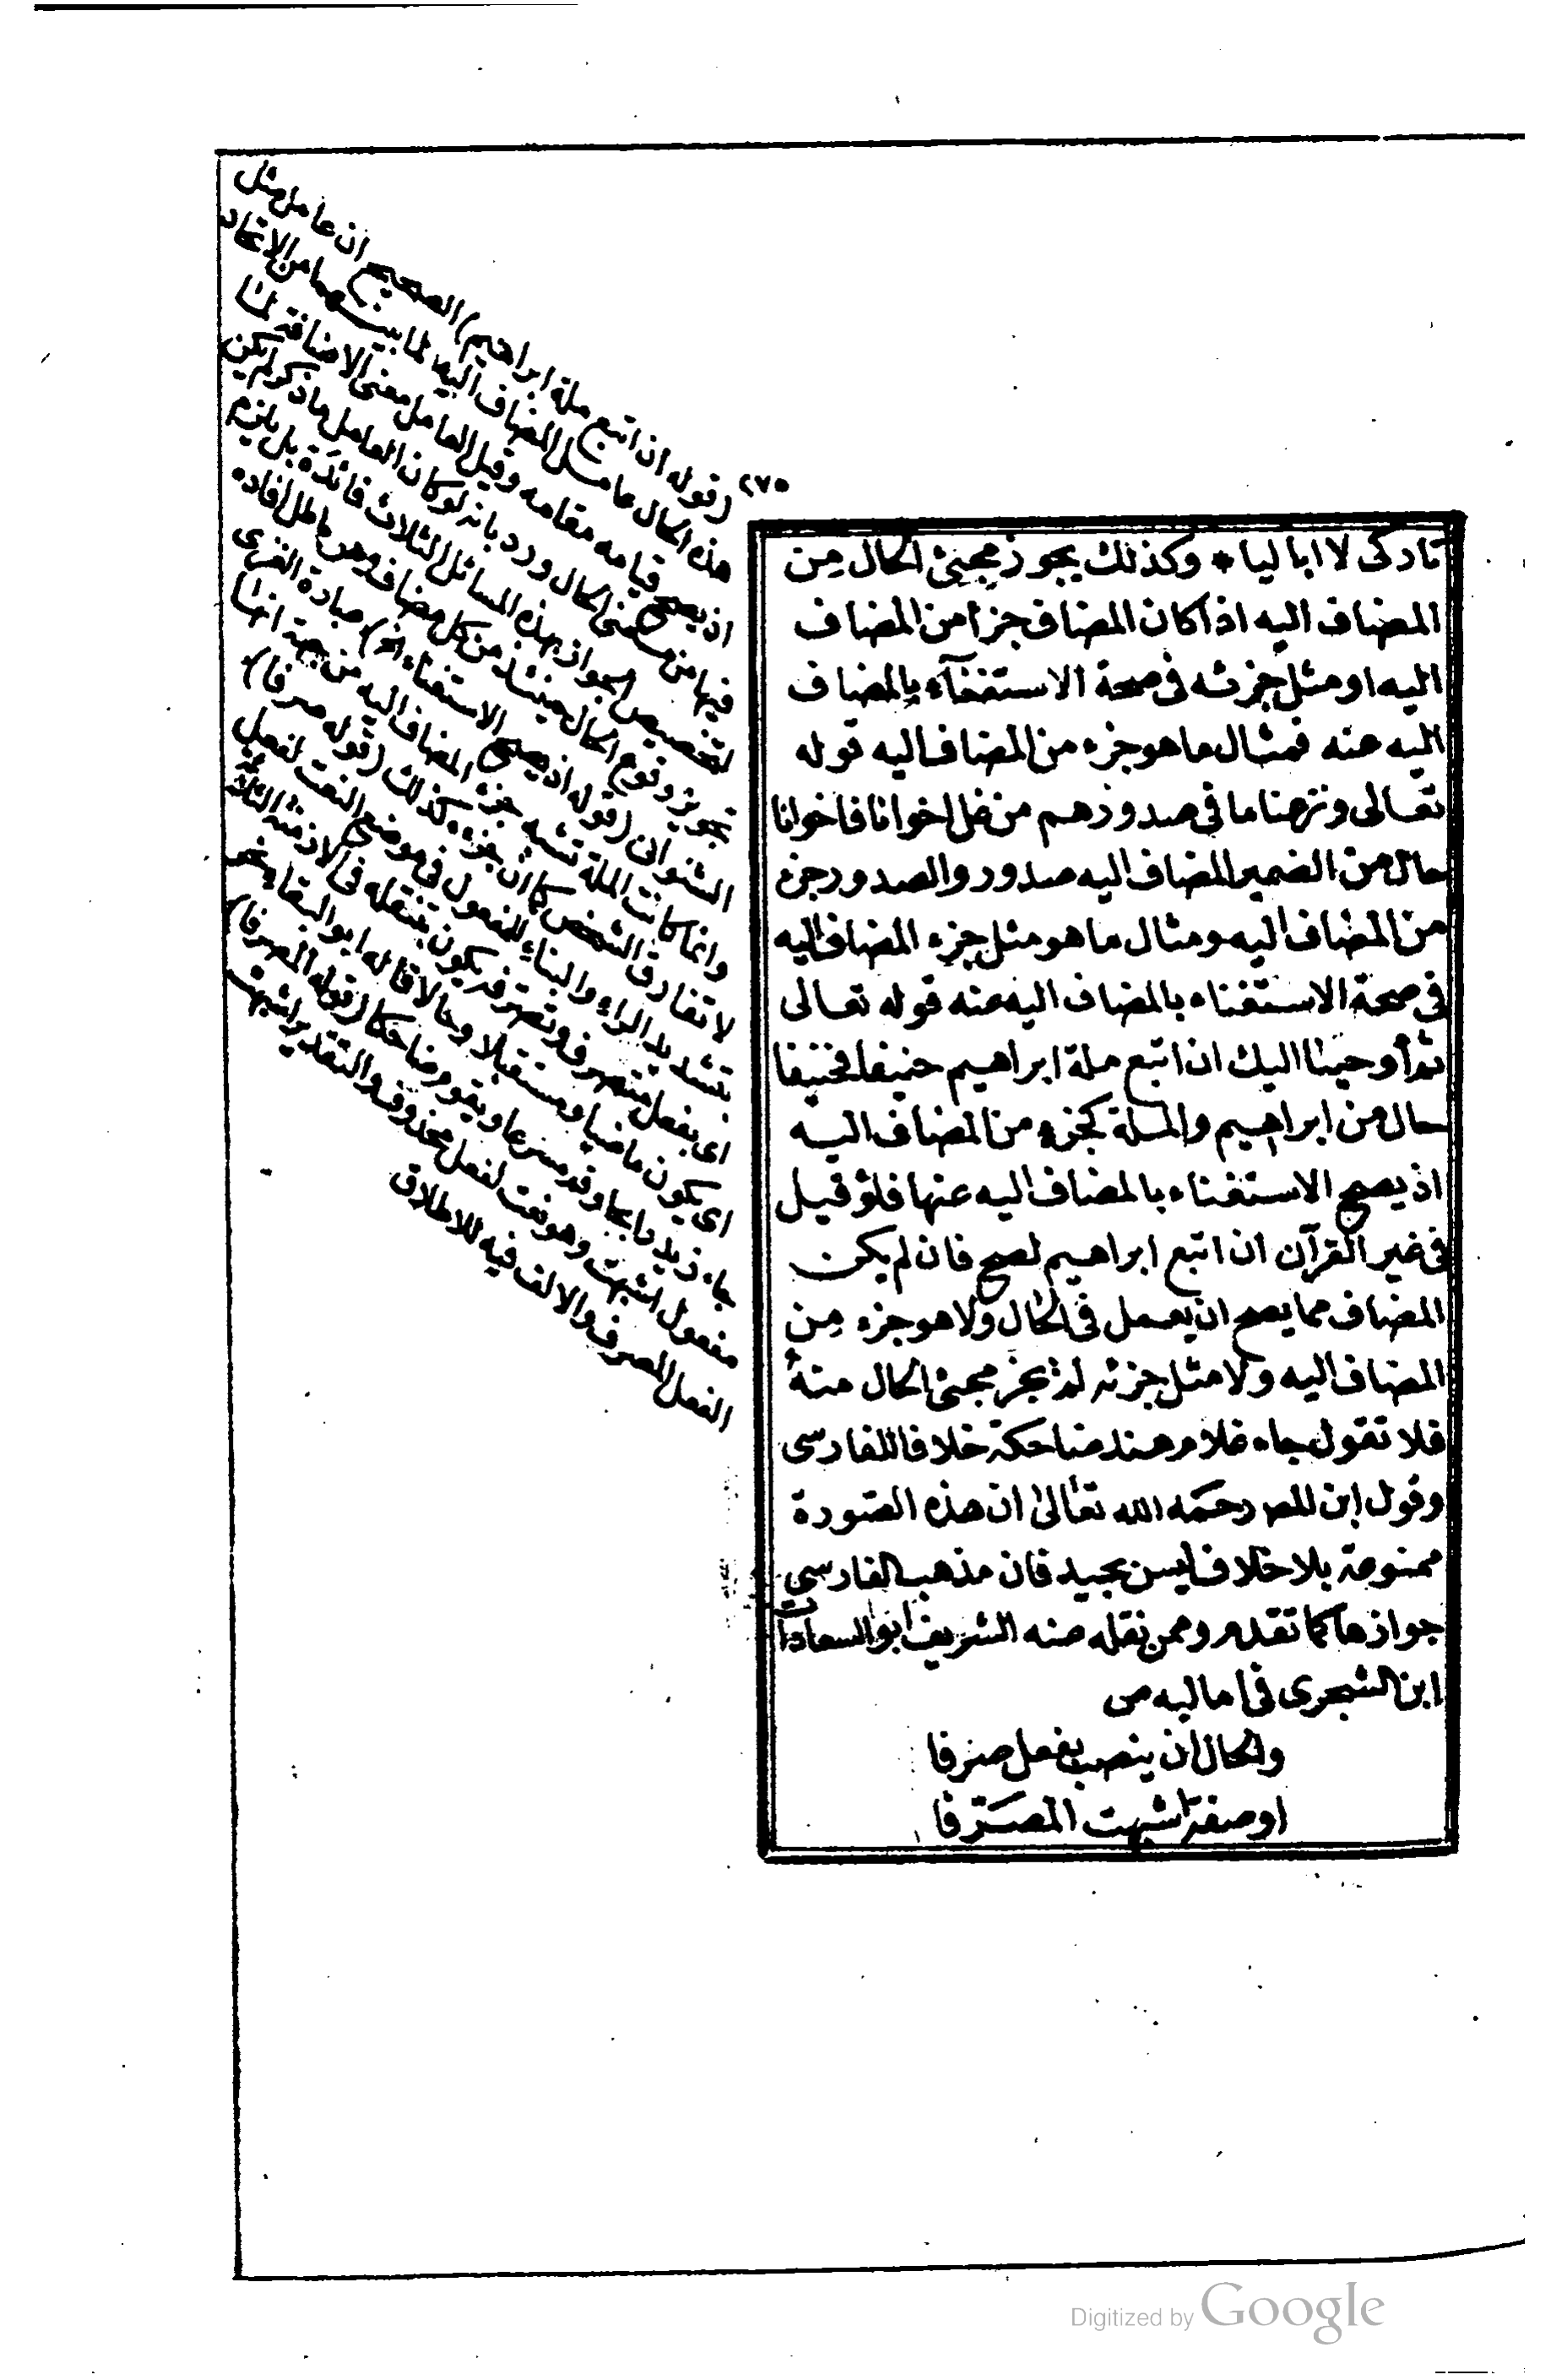 ٢٧٥
تاركى لا اباليا * وكذلك يجوز مجيئ الحال مِن
المضاف اليه اذا كان المضاف جزأ من المضاف
اليه او مثل جزئه فى صحة الاستغناء بالمضاف
اليه عنه فمثال ما هو جزء من المضاف اليه قوله
تعالى ونزعنا ما فى صدورهم من غل اخوانا فاخوانا
حال من الضمير المضاف اليه صدور والصدور جزء
من المضاف اليه ومثال ما هو مثل جزء المضاف اليه
فى صحة الاستغناء بالمضاف اليه عنه قوله تعالى
ثم أوحينا اليك ان اتبع ملة ابراهيم حنيفا فحنيفا
حال من ابراهيم والملة كجزء من المضاف اليه
اذ يصح الاستغناء بالمضاف اليه عنها فلو قيل
فى غير القرآن ان اتبع ابراهيم لصح فان لم يكن
المضاف مما يصح ان يعمل فى الحال ولا هو جزء مِن
المضاف اليه ولا مثل جزئه لم يجز مجيئ الحال منهُ
فلا تقول جاء غلام هند ضاحكة خلافا للفارسى
وقول ابن المص رحمَه الله تعالىٰ ان هذه الصورة
ممنوعة بلا خلاف ليس بجيد فان مذهب الفارسي
جوازها كما تقدم وممن نقله عنه الشريف ابو السعادات
ابن الشجرى فى اماليه ص
والحال ان ينصب بفعل صرفا
او صفة اشبهت المصرّفا
(قوله ان اتبع ملة ابراهيم) الصحيح ان عامل مثل
هذه الحال عامل المضاف اليه لما بينهما من الاتحاد
اذ يصح قيامه مقامه وقيل العامل معنى الاضافة لما
فيها من معنى الحال ورد بانه لو كان العامل ما ذكر لم يكن
لتخصيص الجواز بهذه المسائل الثلاث فائدة بل يلزم
تجويز وقوع الحال حينئذ من كل مضاف وهو باطل افاده
الشنوانى (قوله اذ يصح الاستغناء الخ) عبارة الغزى
وانما كانت الملة تشبه جزء المضاف اليه من جهة انها
لا تفارق الشخص كما ان جزءه كذلك (قوله صرفا)
بتشديد الراء والبناء للمفعول فى موضع النعت لفعل
اى بفعل متصرف وتصرفه يكون بتنقله فى الازمنة الثلاثة
اى يكون ماضيا ومستقبلا وحالا قاله ابو البقاء نحو
جاء زيد راكبا وقد مسرعا ويقوم ضاحكا (قوله المصرفا)
مفعول اشبهت وهو نعت لفعل محذوف والتقدير اشبهت
الفعل المصرف والالف فيه للاطلاق
Digitized by Google